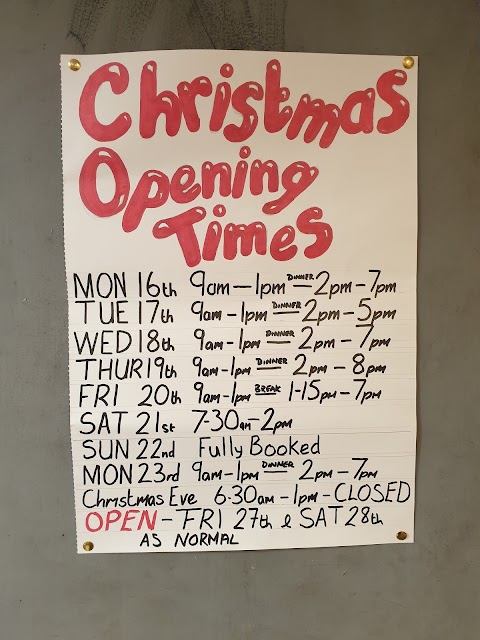 Christmas
Opening
Times
MON 16th 9am-1pm DINNER 2pm-7pm
TUE 17th 9am-1pm DINNER 2pm-5pm
WED 18th 9am-1pm DINNER 2pm-7pm
THUR 19th 9am-1pm DINNER 2pm-8pm
FRI 20th 9am-1pm BREAK 1-15pm-7pm
SAT 21st 7-30am-2pm
SUN 22nd Fully Booked
MON 23rd 9am-1pm DINNER 2pm-7pm
Christmas Eve 6-30am-1pm-CLOSED
OPEN - FRI 27th & SAT 28th
AS NORMAL